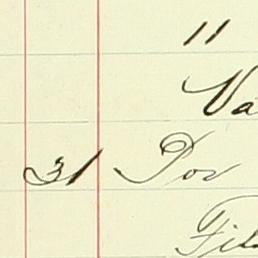 "
Va
31 Por
Fil